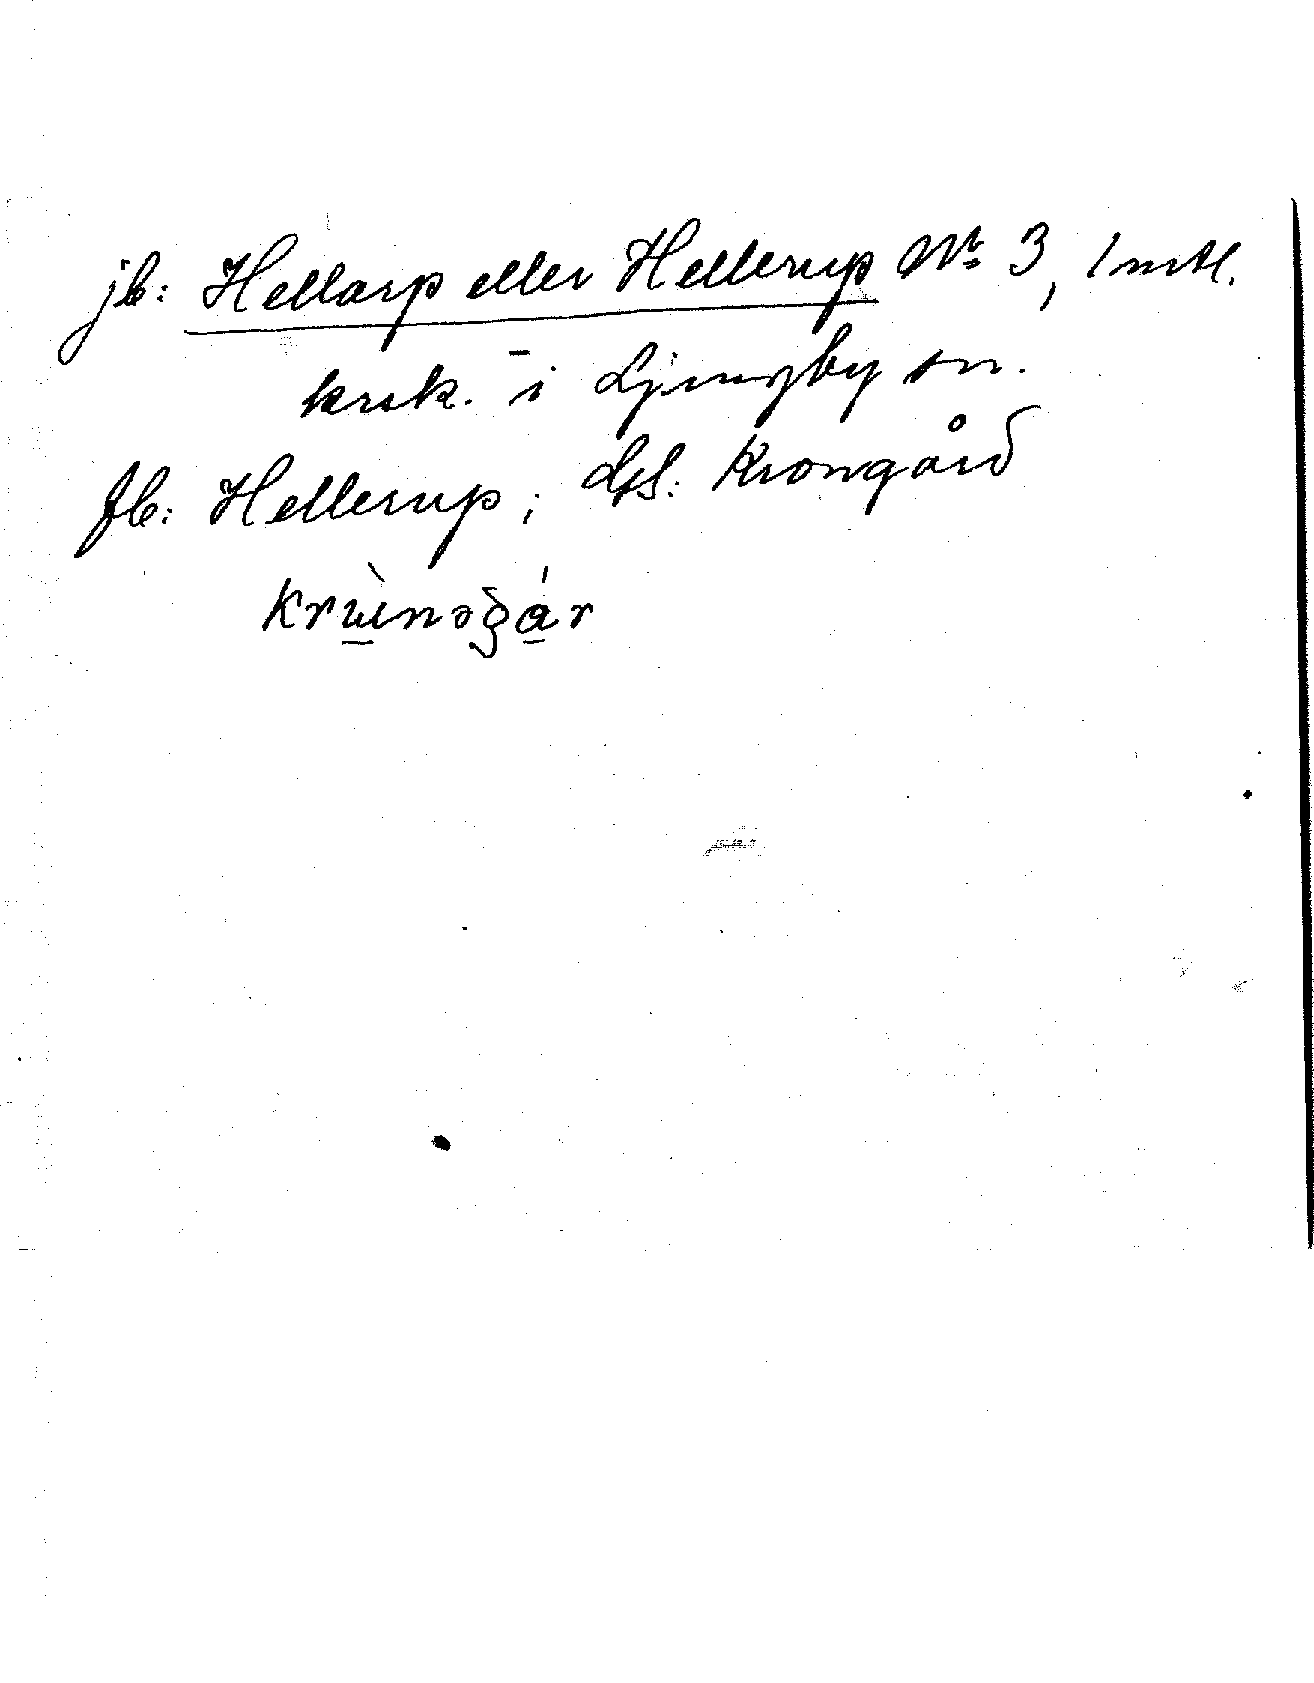 jb: Hellarp eller Hellerup Nr 3, 1 mtl.
krsk. i Ljungby sn.
fb: Hellerup; dfs: Krongård
krɯ̀nəgár